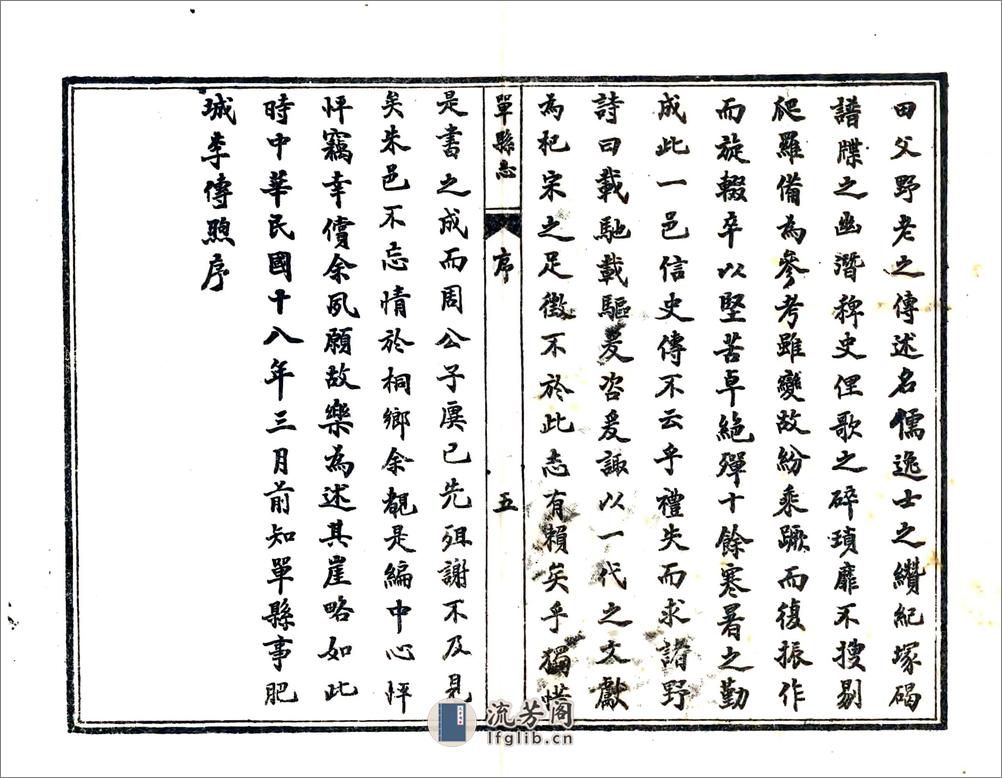 田父野老之傳述名儒逸士之纘紀塚碣
譜牒之幽潛稗史俚歌之碎瑣靡不搜剔
爬羅備為參考雖變故紛乘蹶而復振作
而旋輟卒以堅苦卓絕殫十餘寒暑之勤
成此一邑信史傳不云乎禮失而求諸野
詩曰載馳載驅爰咨爰諏以一代之文獻
為杞宋之足徵不於此志有賴矣乎獨惜
單縣志
序
五
是書之成而周公子廙已先殂謝不及見
矣朱邑不忘情於桐鄉余覩是編中心怦
怦竊幸償余夙願故樂為述其崖略如此
時中華民國十八年三月前知單縣事肥
城李傳煦序
流芳閣
lfglib.cn